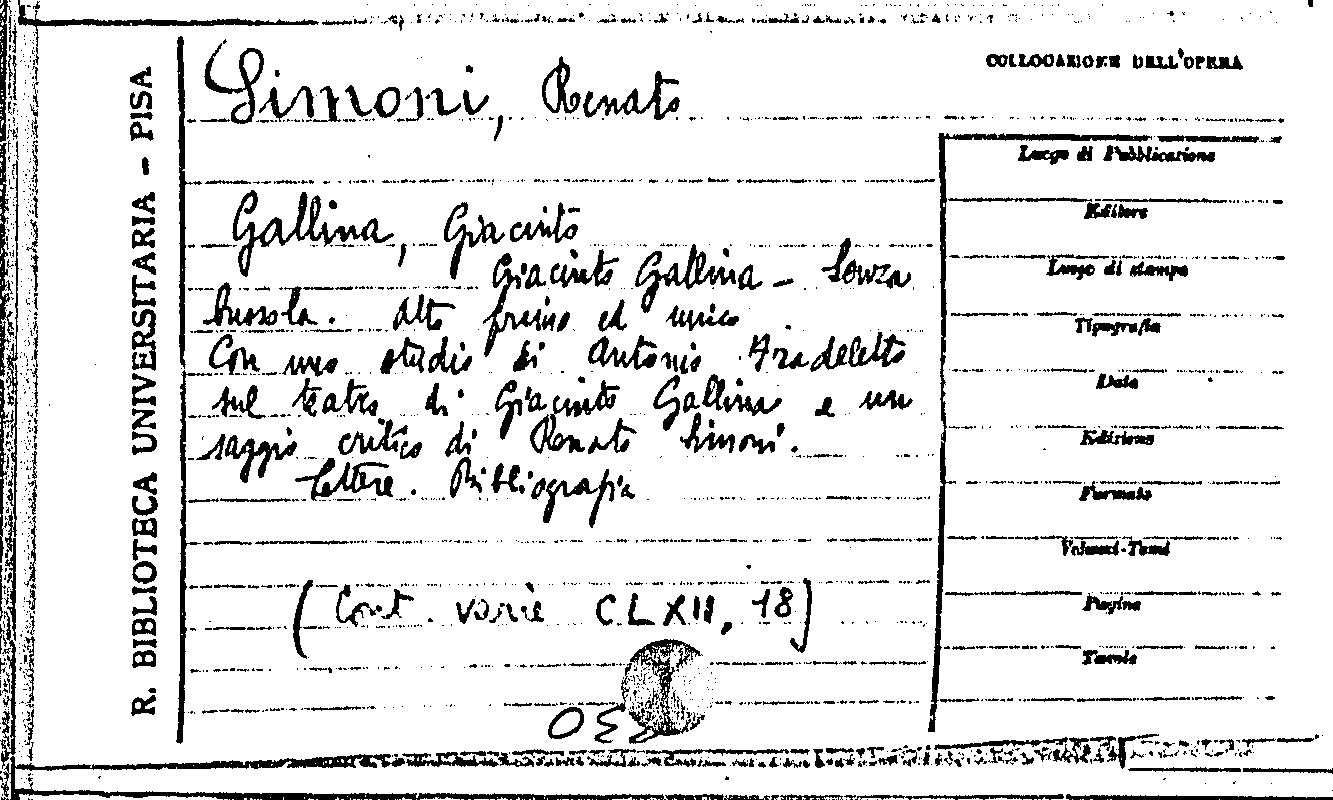 R. BIBLIOTECA UNIVERSITARIA - PISA
COLLOCAZIONE DELL'OPERA
Simoni, Renato
Gallina, Giacinto
Giacinto Gallina - Senza
bussola. Atto primo ed unico
Con uno studio di Antonio Fradeletto
sul teatro di Giacinto Gallina e un
saggio critico di Renato Simoni.
Lettere. Bibliografia
(Cont. varie CLXII, 18)
Luogo di Pubblicazione
Editore
Luogo di stampa
Tipografia
Data
Edizione
Formato
Volumi-Tomi
Pagine
Tavole